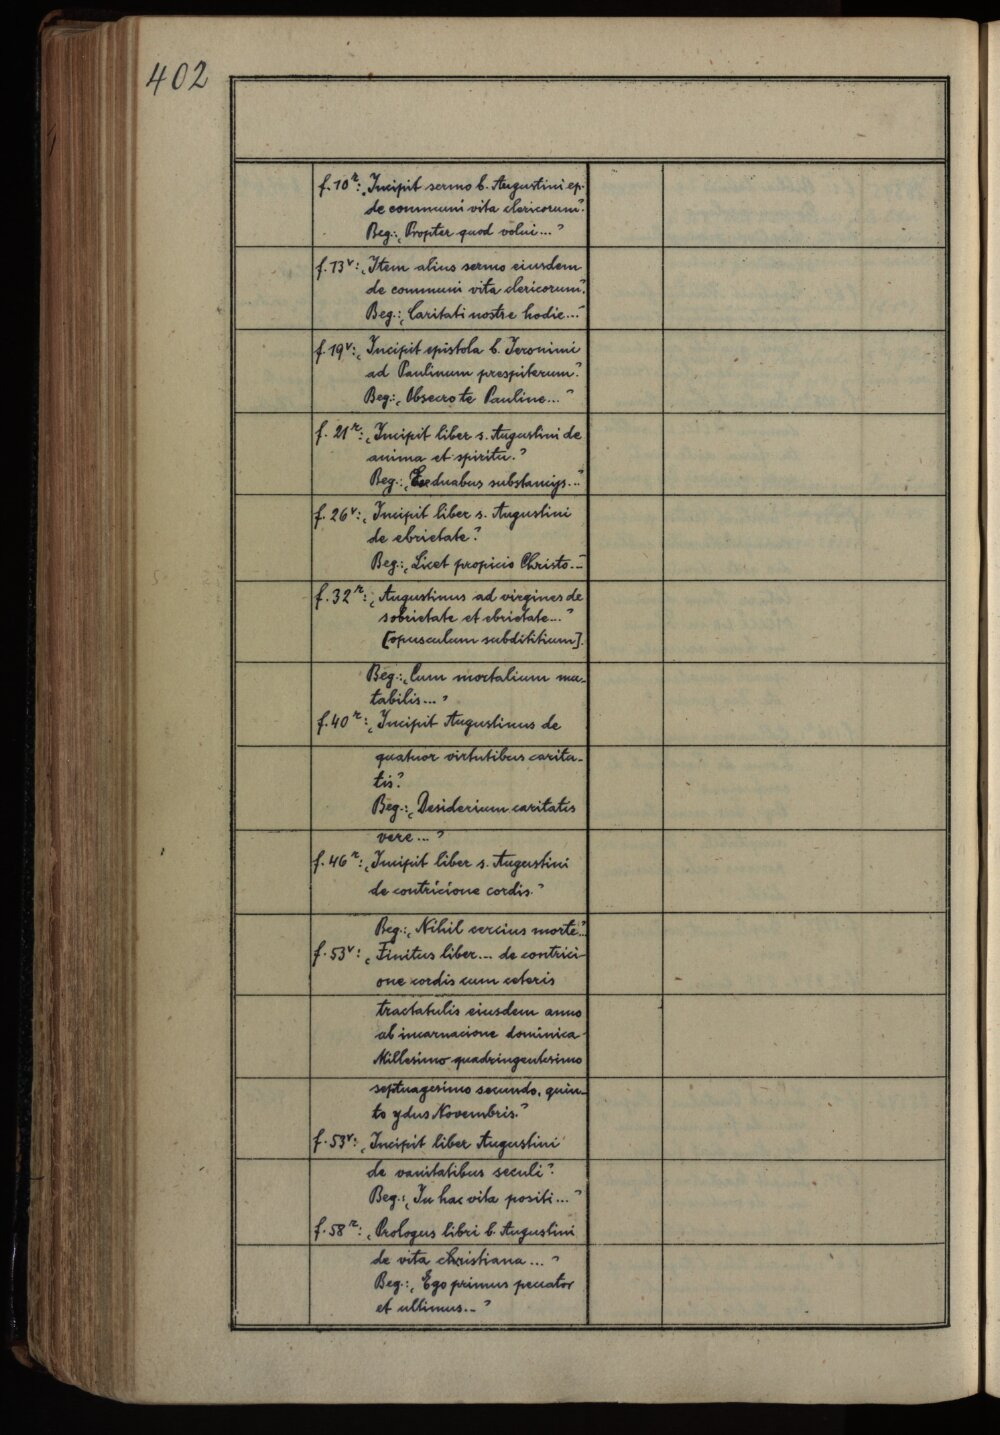 402
f. 10r: „Incipit sermo b. Augustini ep.
de communi vita clericorum“.
Beg.: „Propter quod volui...“
f. 13v: „Item alius sermo eiusdem
de communi vita clericorum“.
Beg.: „Caritati nostre hodie...“
f. 19v: „Incipit epistola b. Jeronimi
ad Paulinum prespiterum“.
Beg.: „Obsecro te Pauline...“
f. 21r: „Incipit liber s. Augustini de
anima et spiritu.“
Beg.: „Ex duabus substancijs...“
f. 26v: „Incipit liber s. Augustini
de ebrietate“.
Beg.: „Licet propicio Christo...“
f. 32r: „Augustinus ad virgines de
sobrietate et ebrietate...“
[opusculum subdititium].
Beg.: „Cum mortalium mu-
tabilis...“
f. 40r: „Incipit Augustinus de
quatuor virtutibus carita-
tis“.
Beg.: „Desiderium caritatis
vere...“
f. 46r: „Incipit liber s. Augustini
de contricione cordis.“
Beg.: „Nihil cercius morte“...
f. 53v: „Finitus liber... de contrici-
one cordis cum ceteris
tractatulis eiusdem anno
ab incarnacione dominica
Millesimo quadringentesimo
septuagesimo secundo, quin-
to ydus Novembris.“
f. 53v: „Incipit liber Augustini
de vanitatibus seculi“.
Beg.: „In hac vita positi...“
f. 58r: „Prologus libri b. Augustini
de vita christiana...“
Beg.: „Ego primus peccator
et ultimus...“